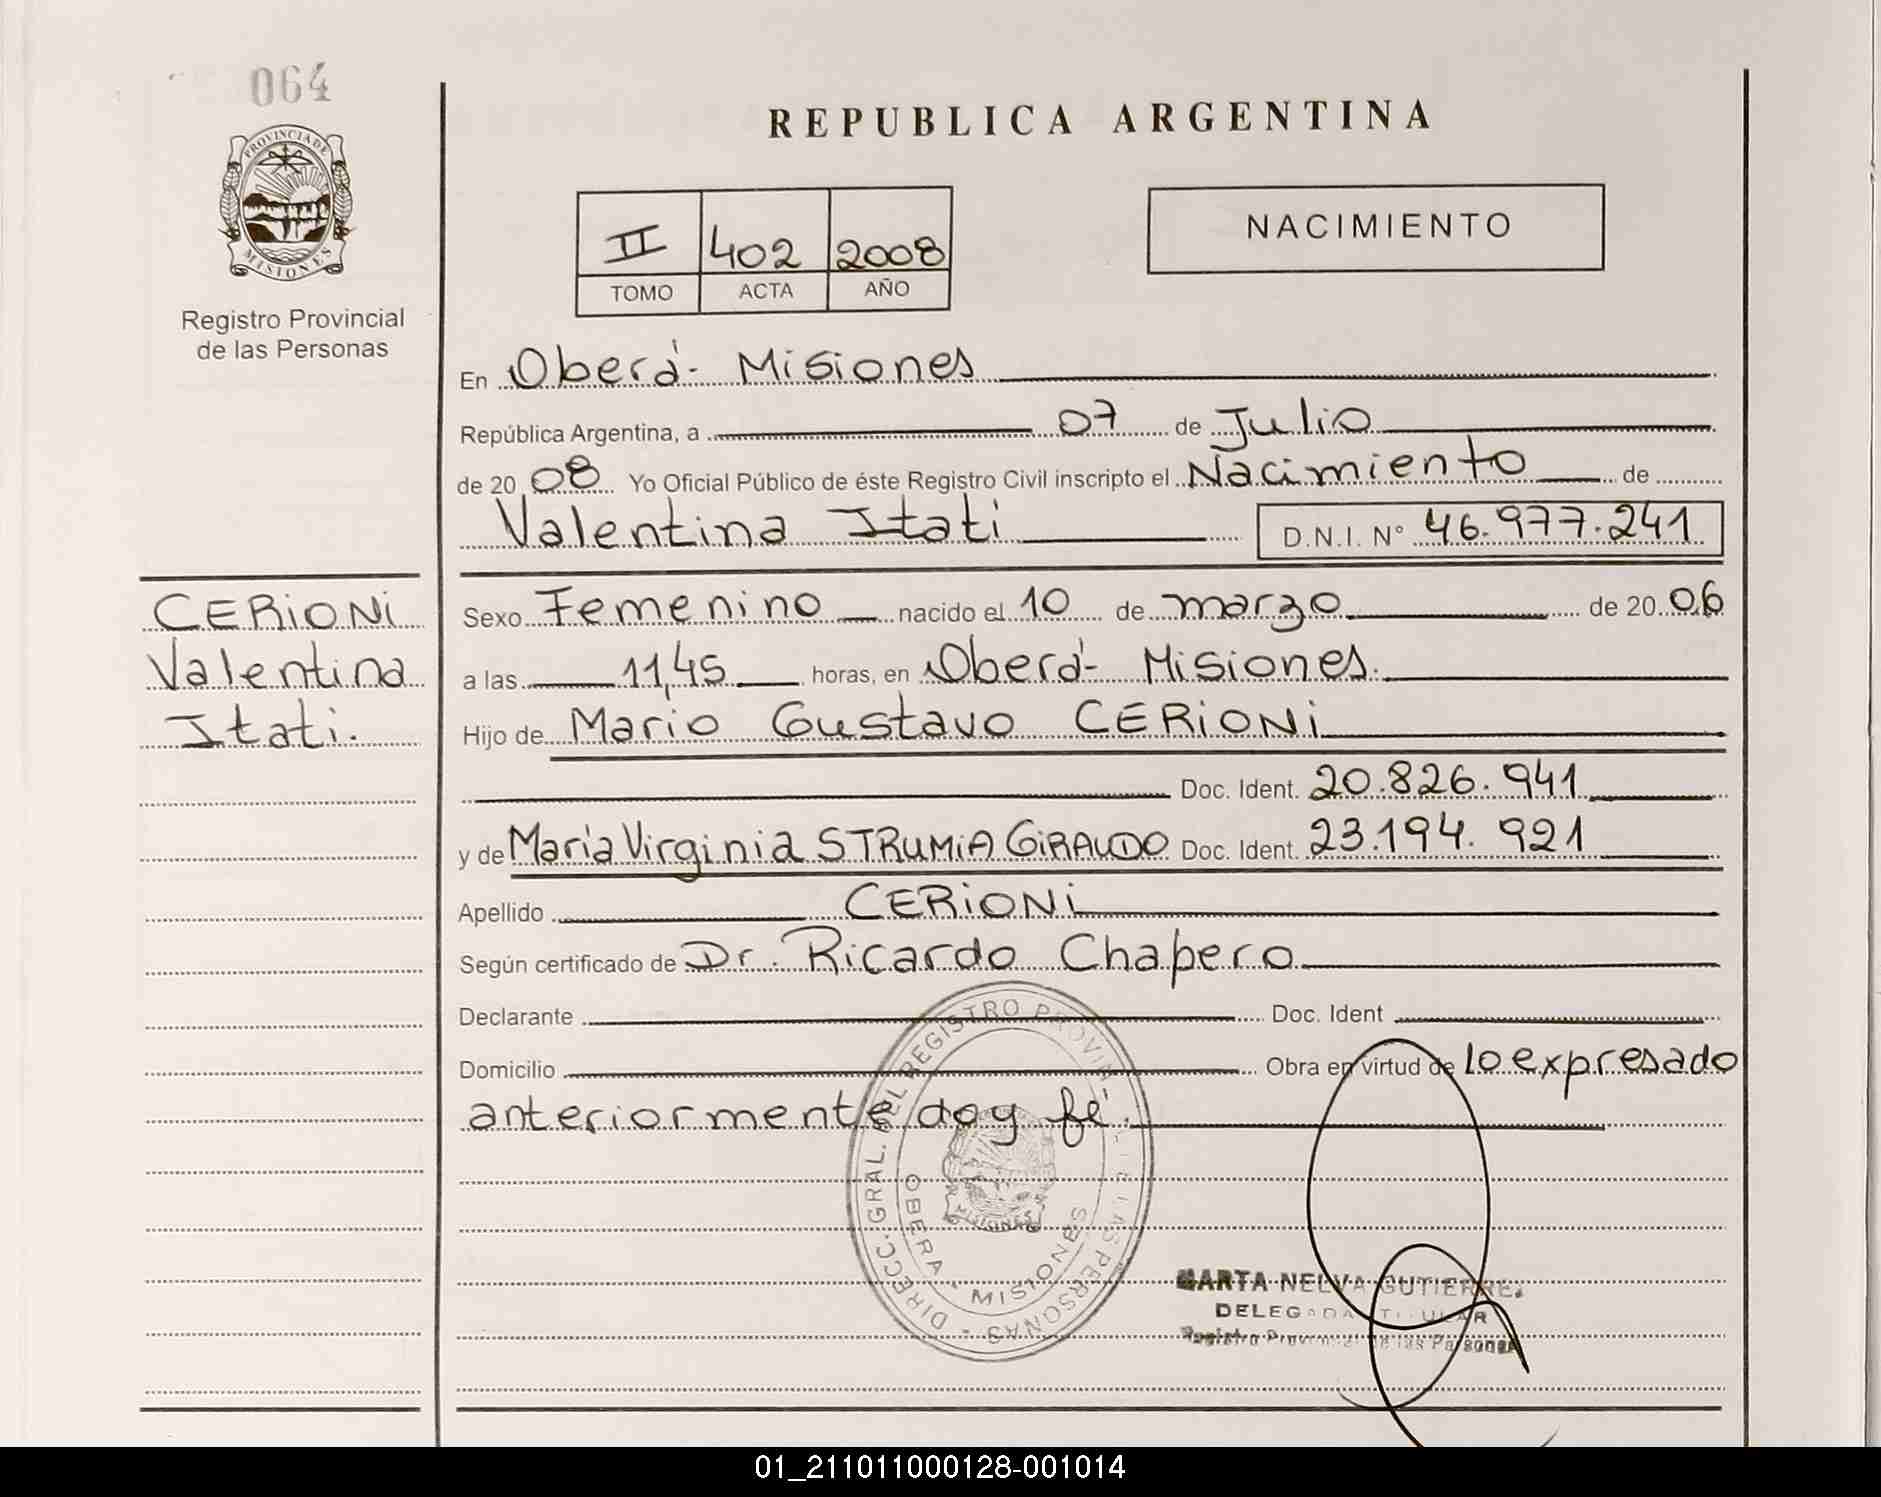 064
PROVINCIA DE
MISIONES
Registro Provincial
de las Personas
REPUBLICA ARGENTINA
II 402 2008
TOMO ACTA AÑO
NACIMIENTO
En Oberá- Misiones
República Argentina, a 07 de Julio
de 20 08 Yo Oficial Público de éste Registro Civil inscripto el Nacimiento de
Valentina Itati D.N.I. N° 46.977.241
CERIONI
Valentina
Itati.
Sexo Femenino nacido el 10 de marzo de 20 06
a las 11,45 horas, en Oberá- Misiones.
Hijo de Mario Gustavo CERIONI
Doc. Ident. 20.826.941
y de María Virginia STRUMIA GIRAUDO Doc. Ident. 23.194.921
Apellido CERIONI
Según certificado de Dr. Ricardo Chapero
Declarante Doc. Ident
Domicilio Obra en virtud de lo expresado
anteriormente doy fé.
DIRECC. GRAL. DEL REGISTRO PROVIN DE LAS PERSONAS -
OBERA - MISIONES
MISIONES
MARTA NELVA GUTIERREZ
DELEGADA TITULAR
Registro Provincial de las Personas
01_211011000128-001014